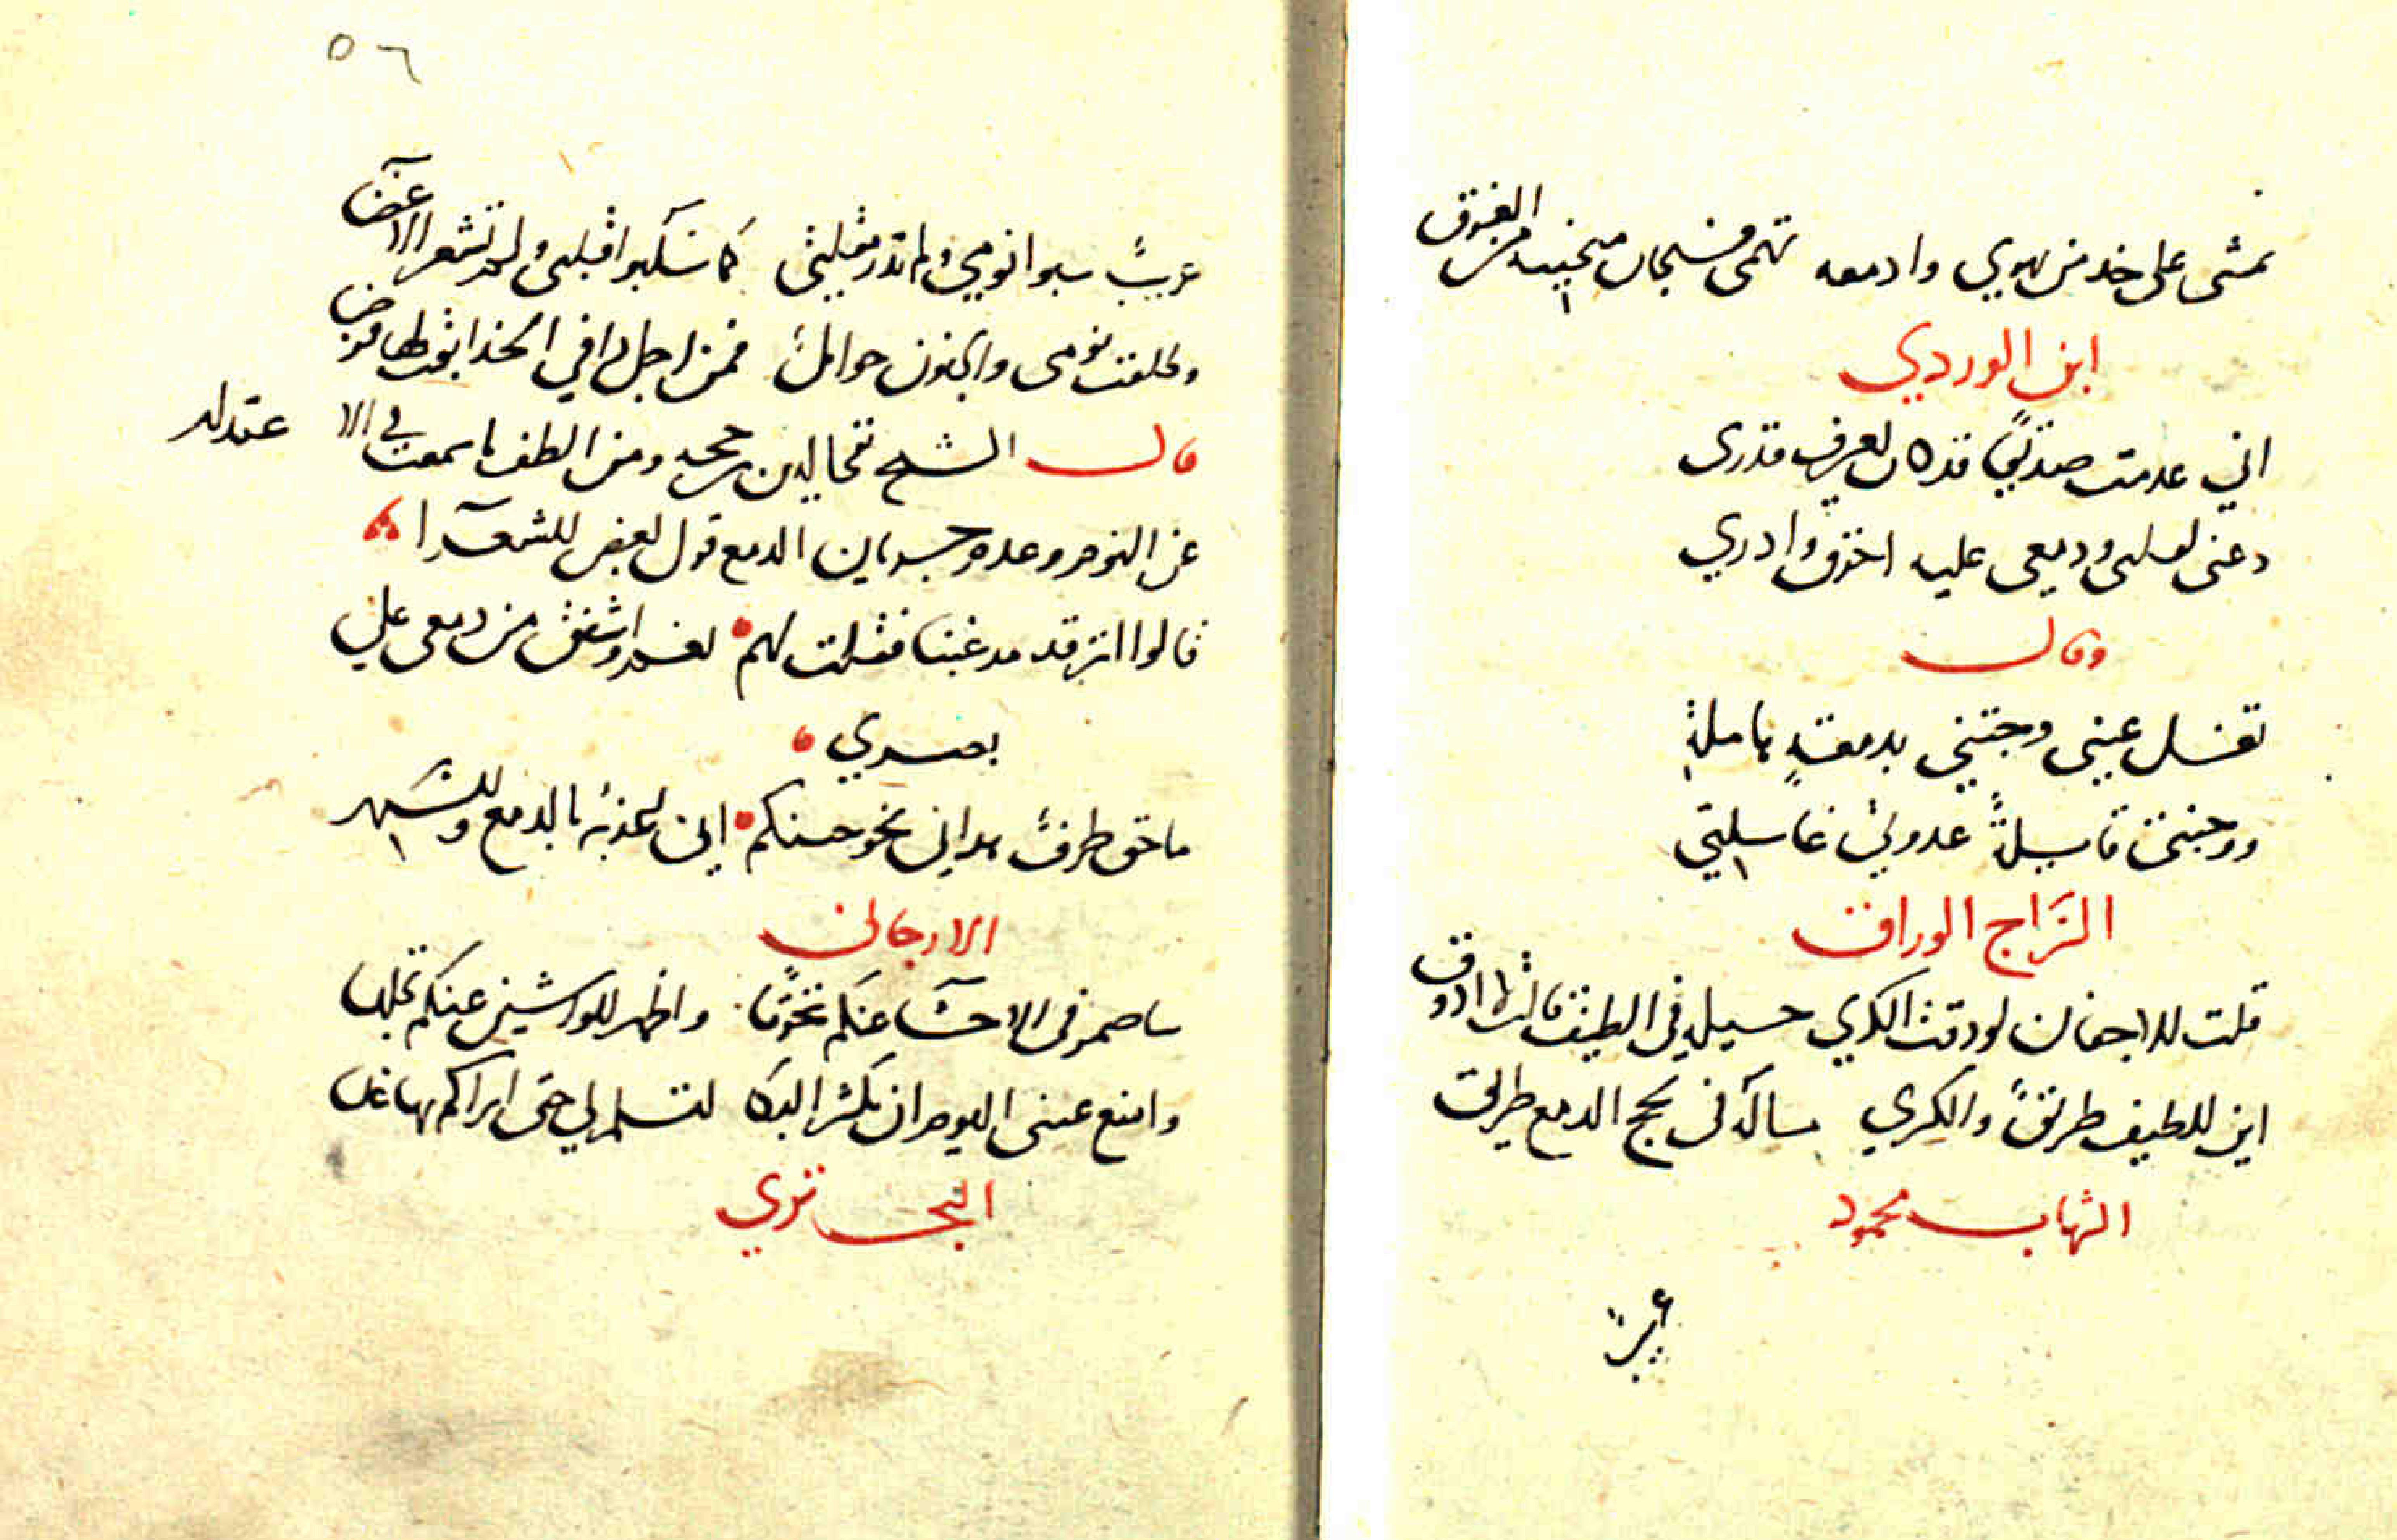 يمشي على خد من يهوي وادمعه تهمى فسبحان منجيه من الغرق
ابن الوردي
اني عدمت صديقا قد كان يعرف قدري
دعني لقلبي ودمعي عليه احرق وادري
وقال
تغسل عيني وجنتي بدمعة هاملة
ووجنتي قايلة عدوتي غاسلتي
السراج الوراق
قلت للاجفان لو ذقت الكري حسبك في الطيف قالت لا اذوق
اين للطيف طريق والكري ساكن لحج الدمع طريق
الشهاب محمود
عريب
٥٦
عريب سبوا نومي ولم تدر مقلتي كما سلبوا قلبي ولم تشعر الاعضا
وطلقت نومى والجفون حوامل فمن اجل ذا في الخد ابقت لها فرضا
قال الشيخ تقي الدين بن حجه ومن الطف ما سمعت في الاعتذار
عن النوم وعدم جريان الدمع قول بعض الشعرا
قالوا اترقد مذ غبنا فقلت لهم نعم واشفق من دمعى علي
بصري
ماحق طرف هداني نحو حسنكم اني اعذبه بالدمع والسهر
الارجاني
ساضمر في الاحشا عنكم تحرقا واظهر للواشين عنكم تجلدا
وامنع عيني اليوم ان تكثر البكا لتسلم لي حتى اراكم بها غدا
البحتري